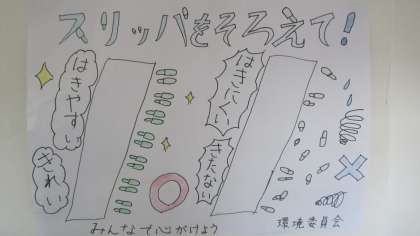 スリッパをそろえて!
はきやすい
きれい
はきにくい
きたない
みんなで心がけよう
環境委員会